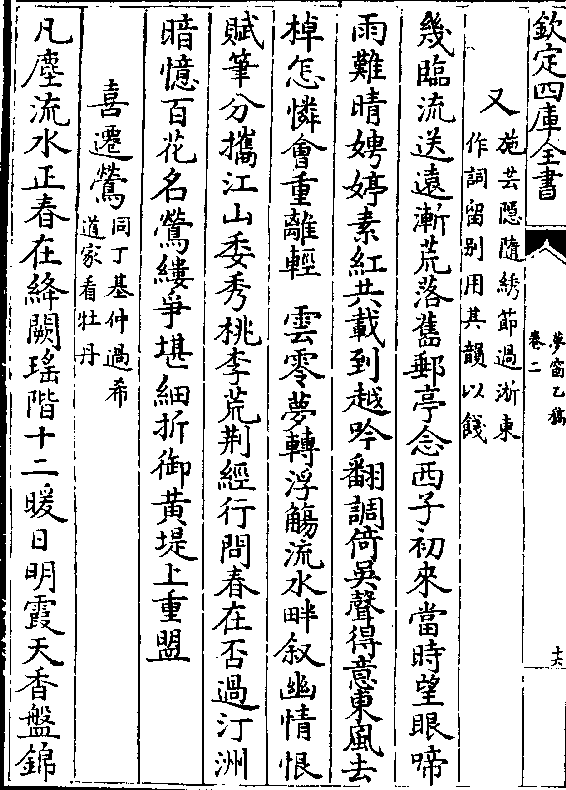 欽定四庫全書
夢窗乙稿
卷二
十六
又
施芸隱隨綉節過浙東
作詞留别用其韻以餞
幾臨流送遠漸荒落舊郵亭念西子初來當時望眼啼
雨難晴娉婷素紅共載到越吟翻調倚吳聲得意東風去
棹怎憐會重離輕　雲零夢轉浮觴流水畔叙幽情恨
賦筆分攜江山委秀桃李荒荆經行問春在否過汀洲
暗憶百花名鶯縷爭堪細折御黄堤上重盟
喜遷鶯
同丁基仲過希
道家看牡丹
凡塵流水正春在絳闕瑤階十二暖日明霞天香盤錦